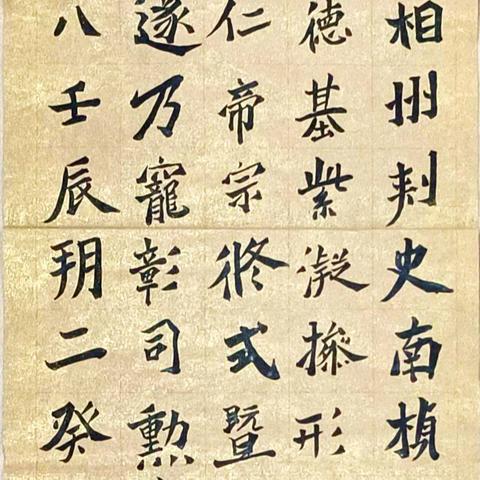 相州刾史南楨
德基紫凝操形
仁帝宗攸式暨
遂乃寵彰司勳
八壬辰朔二癸